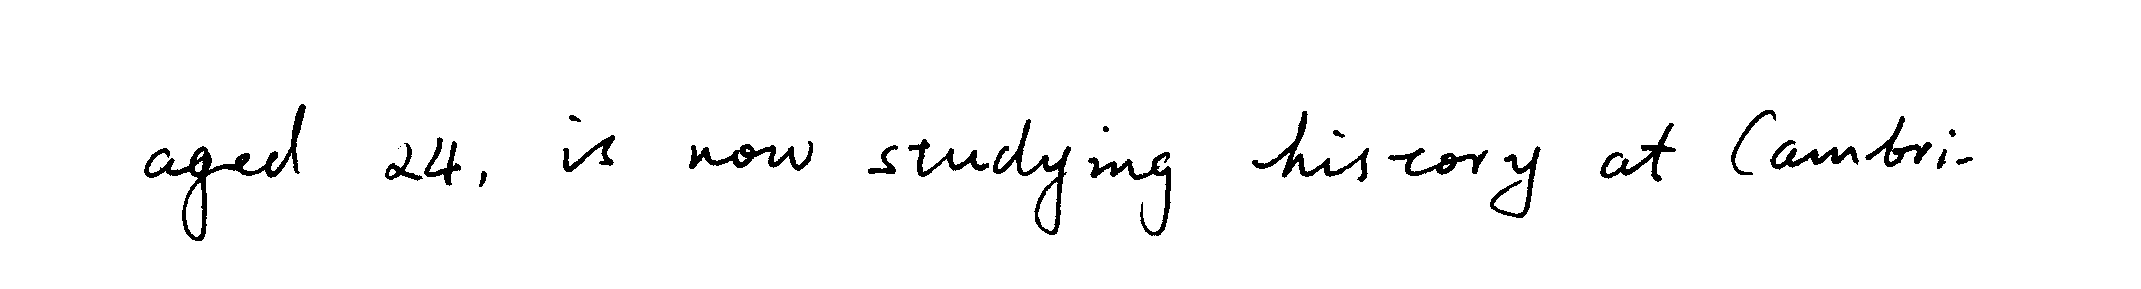 aged 24, is now studying history at Cambri-